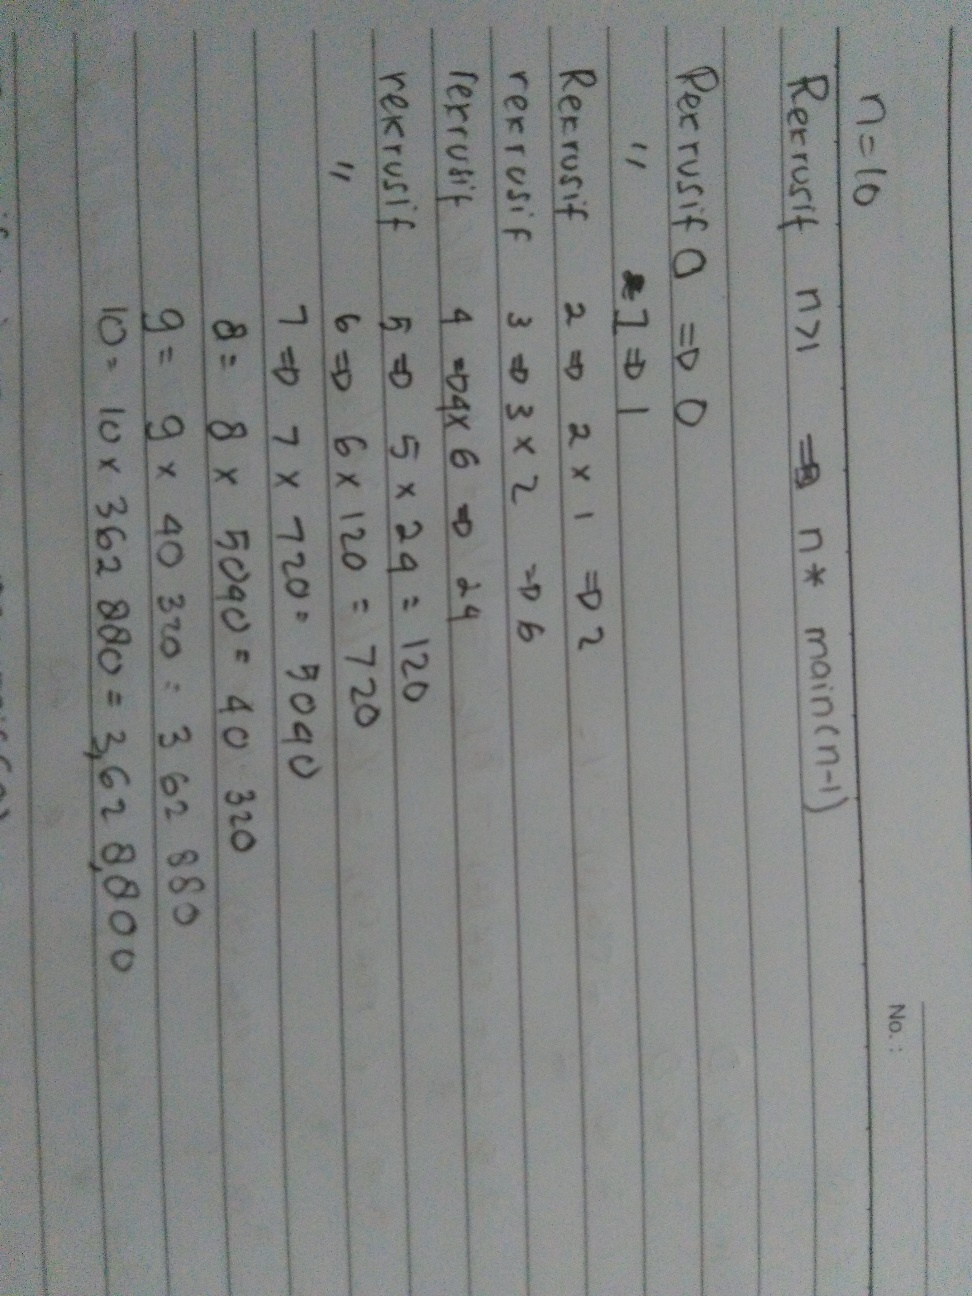 No. :
n = 10
Rekrusif n>1 => n * main(n-1)
Rekrusif 0 => 0
" 1 => 1
Rekrusif 2 => 2 x 1 => 2
rekrusif 3 => 3 x 2 => 6
rekrusif 4 => 4x 6 => 24
rekrusif 5 => 5 x 24 = 120
" 6 => 6 x 120 = 720
7 => 7 x 720 = 5040
8 = 8 x 5040 = 40 320
9 = 9 x 40 320 = 3 62 880
10 = 10 x 362 880 = 3,62 8,800